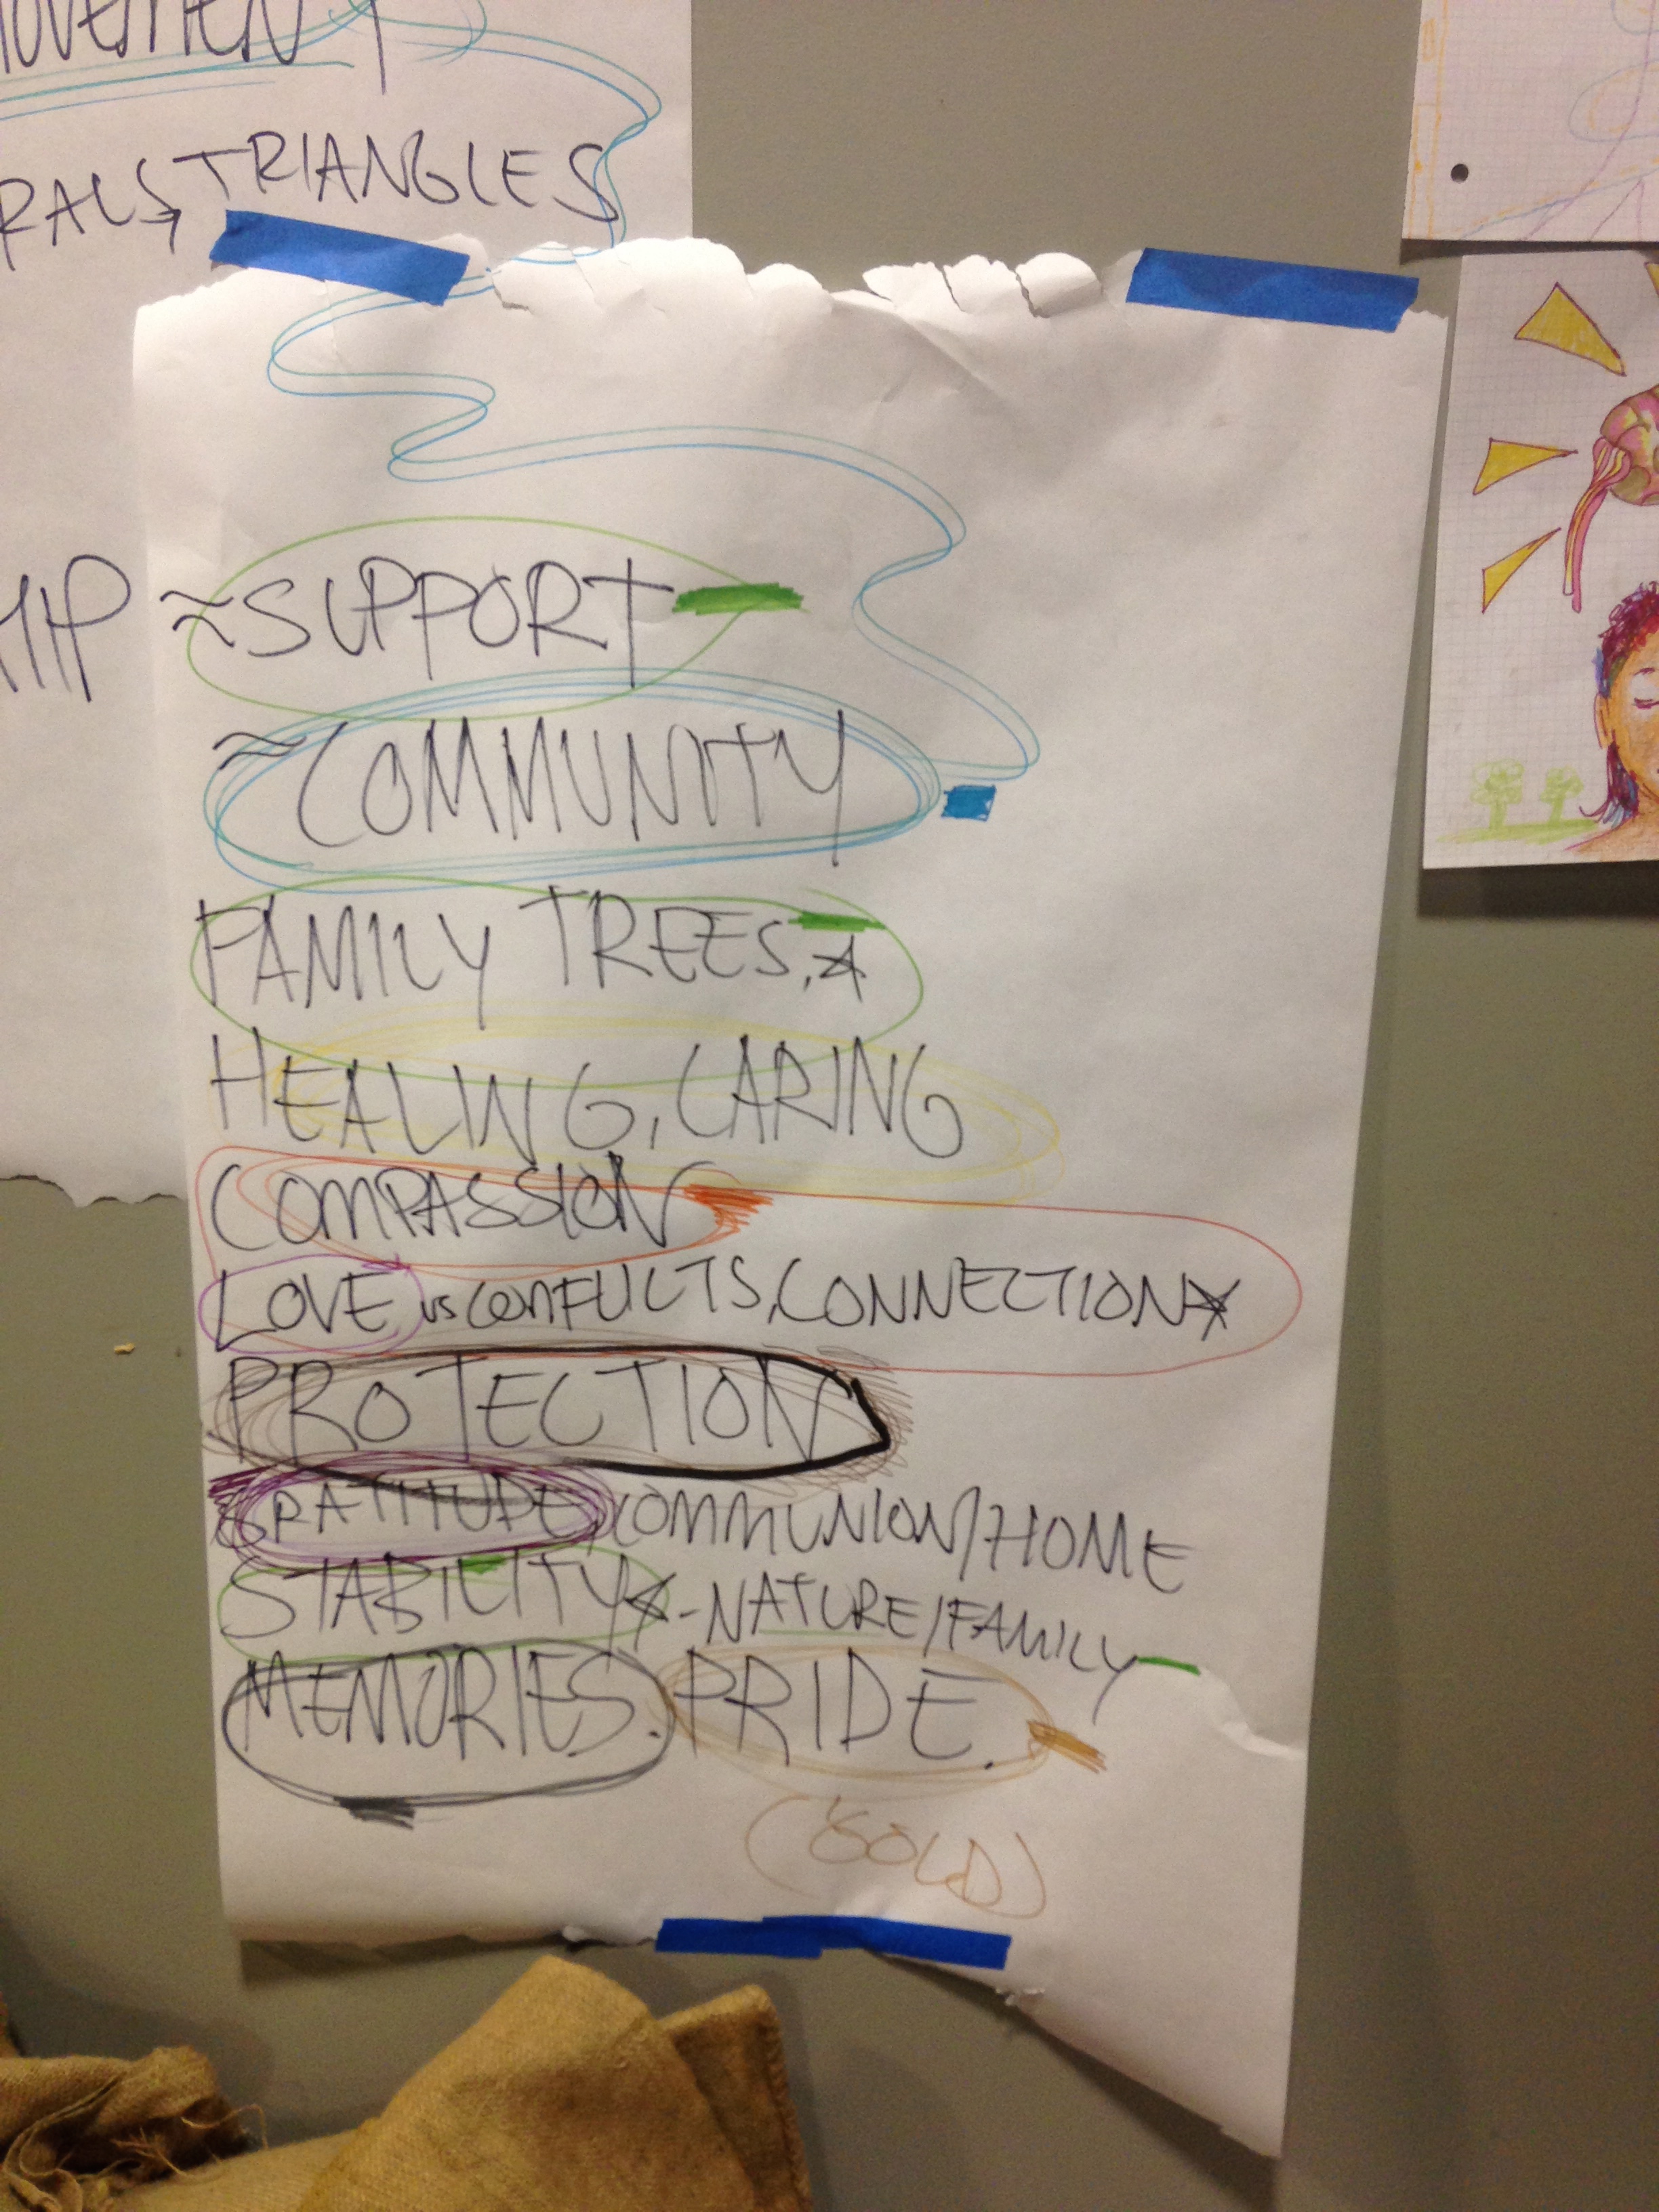 TRIANGLES
≈SUPPORT
≈COMMUNITY
FAMILY TREES.☆
HEALING, CARING
COMPASSION
LOVE vs CONFLICTS, CONNECTION☆
PROTECTION
GRATITUDE, COMMUNION/HOME
STABILITY☆-NATURE/FAMILY
MEMORIES. PRIDE.
(GOLD)